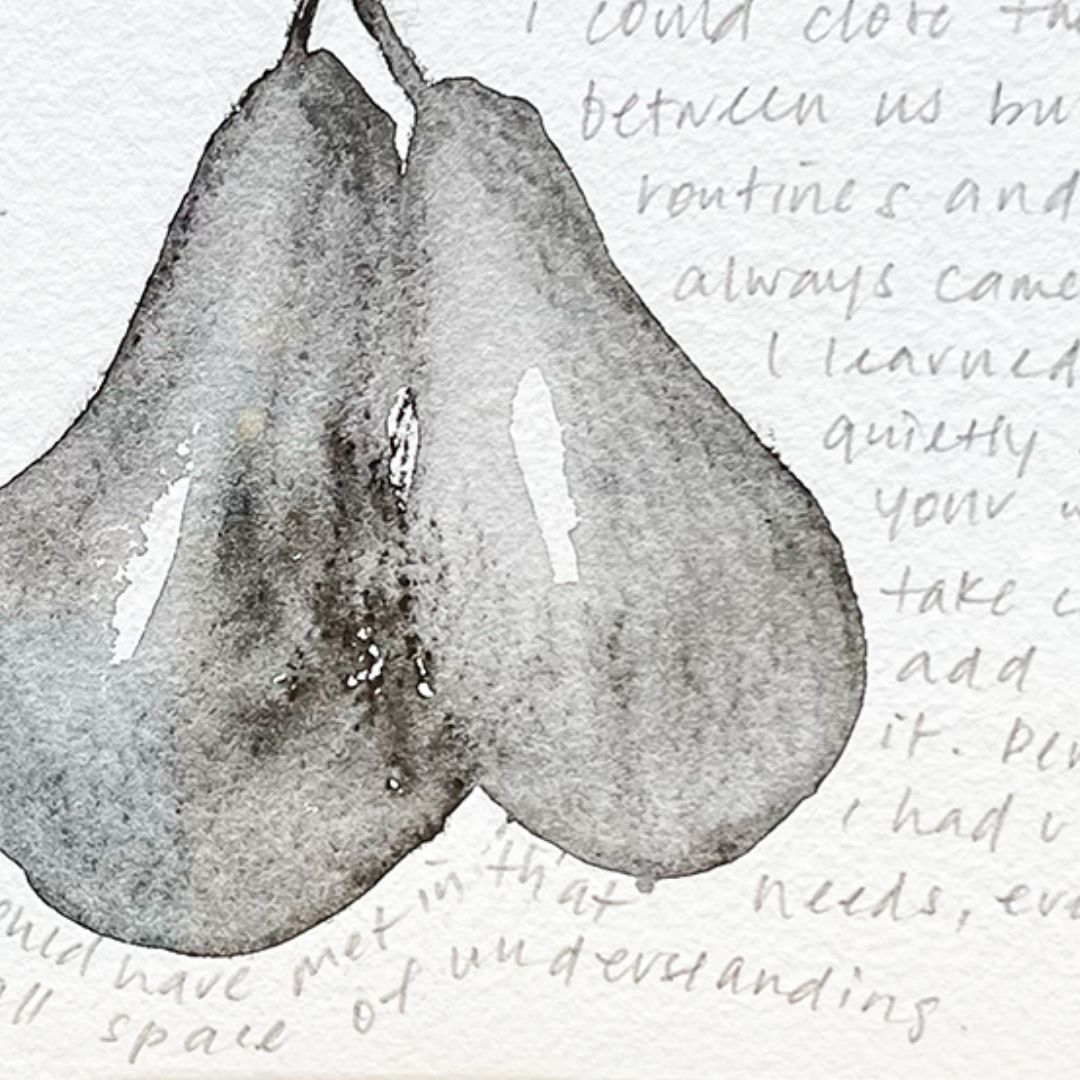 I could close
between us
routines and
always came
I learned
quietly
your
take
add
it.
I had
needs,
have met in that
space of understanding.